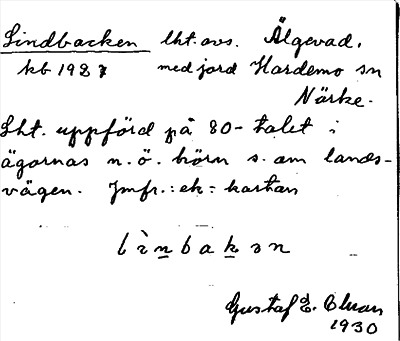 Lindbacken lht. avs. Älgevad,
kb 1927 med jord Hardemo sn
Närke.
Lht. uppförd på 80-talet i
ägornas n.ö. hörn s. om lands-
vägen. Jmfr.: ek: kartan
lìnbakən
Gustaf E.
1930